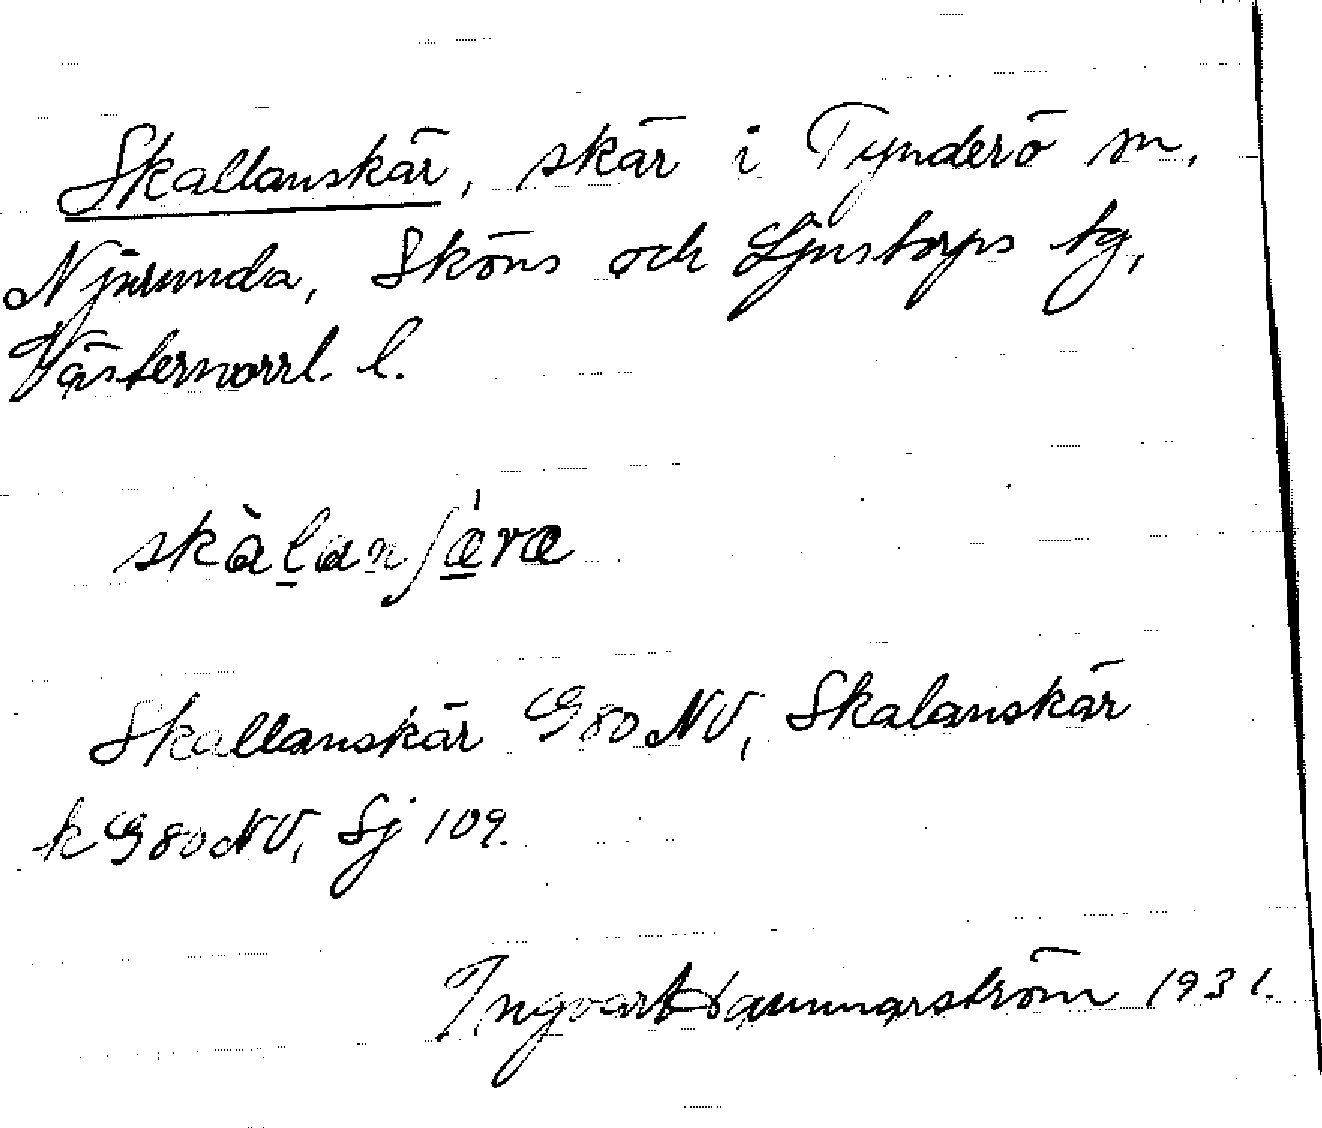 Skallanskär, skär i Tynderö sn,
Njurunda, Sköns och Ljustorps tg,
Västernorrl. l.
skàlanʃæ̀ræ
Skallanskär G80NV, Skalanskär
k G80NV, Sj 109.
Ingvart Hammarström 1931.